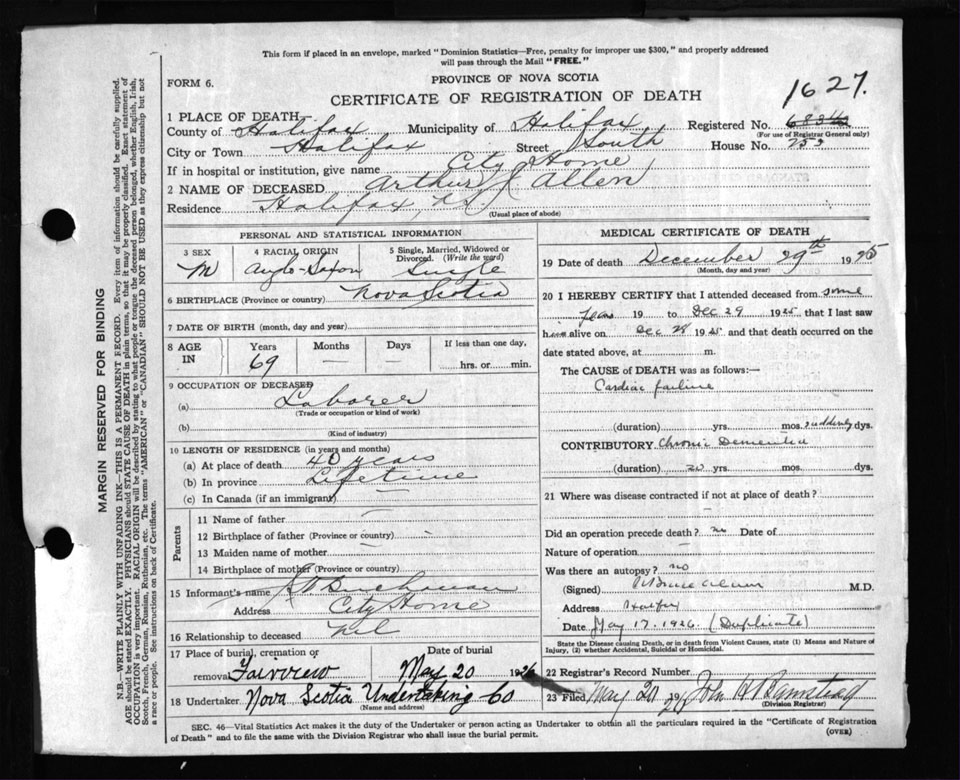 This form if placed in an envelope, marked "Dominion Statistics—Free, penalty for improper use $300," and properly addressed
will pass through the Mail "FREE."
PROVINCE OF NOVA SCOTIA
FORM 6.
CERTIFICATE OF REGISTRATION OF DEATH
1627.
1 PLACE OF DEATH—
County of Halifax Municipality of Halifax Registered No.
(For use of Registrar General only)
City or Town Halifax Street South House No.
If in hospital or institution, give name City Home
2 NAME OF DECEASED Arthur Allen
Residence Halifax, N.S.
(Usual place of abode)
PERSONAL AND STATISTICAL INFORMATION
3 SEX 4 RACIAL ORIGIN 5 Single, Married, Widowed or
Divorced. (Write the word)
M Anglo-Saxon Single
6 BIRTHPLACE (Province or country) Nova Scotia
7 DATE OF BIRTH (month, day and year)
8 AGE IN Years Months Days If less than one day,
69 — — hrs. or min.
9 OCCUPATION OF DECEASED
(a) Laborer
(Trade or occupation or kind of work)
(b)
(Kind of industry)
10 LENGTH OF RESIDENCE (in years and months)
(a) At place of death 40 years
(b) In province Lifetime
(c) In Canada (if an immigrant) —
Parents
11 Name of father —
12 Birthplace of father (Province or country) —
13 Maiden name of mother —
14 Birthplace of mother (Province or country)
15 Informant's name Buchanan
Address City Home
16 Relationship to deceased Nil
17 Place of burial, cremation or Date of burial
removal Fairview May 20 1926
18 Undertaker Nova Scotia Undertaking Co
(Name and address)
MEDICAL CERTIFICATE OF DEATH
19 Date of death December 29th 1925
(Month, day and year)
20 I HEREBY CERTIFY that I attended deceased from some
years 19 to Dec 29 1925 that I last saw
h alive on Dec 28 1925 and that death occurred on the
date stated above, at — m.
The CAUSE of DEATH was as follows:—
Cardiac failure
(duration) yrs. mos. suddenly dys.
CONTRIBUTORY Chronic Dementia
(duration) 20 yrs. mos. dys.
21 Where was disease contracted if not at place of death?
Did an operation precede death? no Date of
Nature of operation —
Was there an autopsy? no
(Signed) M.D.
Address Halifax
Date May 17. 1926 (Duplicate)
State the Disease causing Death, or in death from Violent Causes, state (1) Means and Nature of
Injury, (2) whether Accidental, Suicidal or Homicidal.
22 Registrar's Record Number
23 Filed May 20 19 John H Barnstead
(Division Registrar)
SEC. 46—Vital Statistics Act makes it the duty of the Undertaker or person acting as Undertaker to obtain all the particulars required in the "Certificate of Registration
of Death" and to file the same with the Division Registrar who shall issue the burial permit.
(OVER)
MARGIN RESERVED FOR BINDING
N.B.—WRITE PLAINLY WITH UNFADING INK—THIS IS A PERMANENT RECORD. Every item of information should be carefully supplied.
AGE should be stated EXACTLY. PHYSICIANS should STATE CAUSE OF DEATH in plain terms, so that it may be properly classified. Exact statement of
OCCUPATION is very important. RACIAL ORIGIN will be described by stating to what people or tongue the deceased person belonged, whether English, Irish,
Scotch, French, German, Russian, Ruthenian, etc. The terms "AMERICAN" or "CANADIAN" SHOULD NOT BE USED as they express citizenship but not
a race or people. See instructions on back of Certificate.